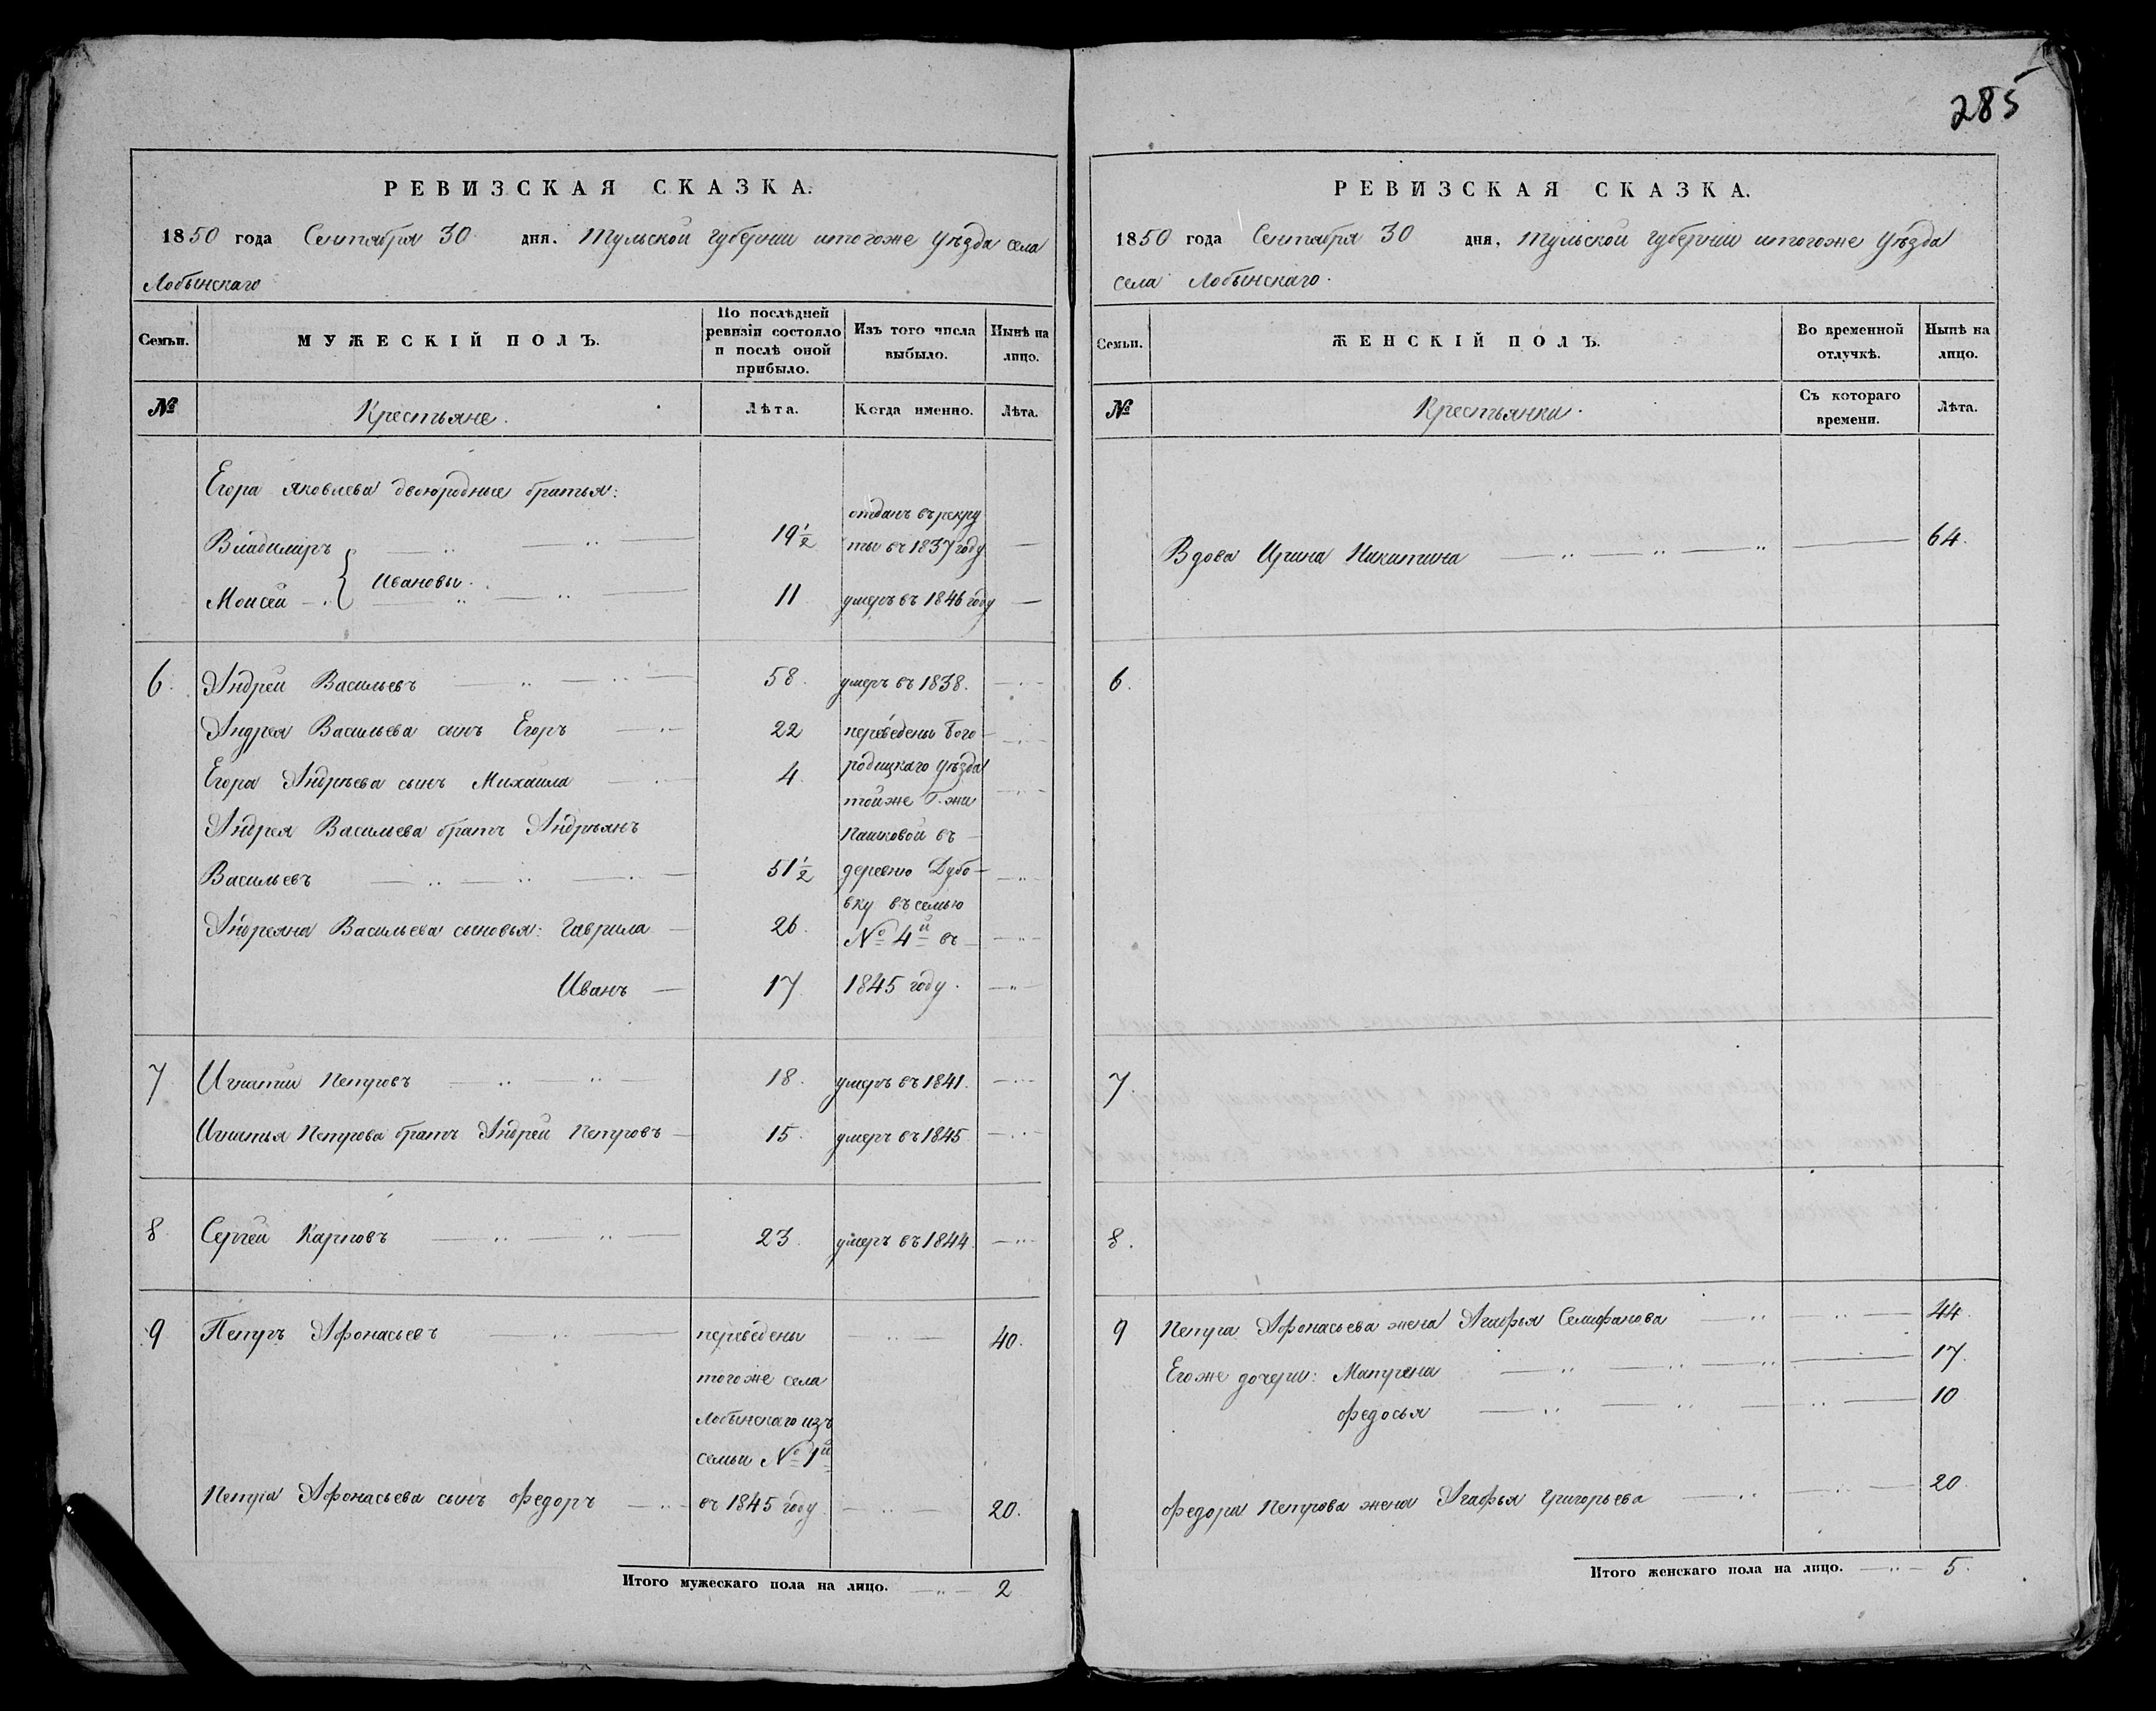 285
РЕВИЗСКАЯ СКАЗКА.
1850 года Сентября 30 дня. Тульской губернии итогоже уѣзда села
Лобынскаго
Семьи.
МУЖЕСКІЙ ПОЛЪ.
По послѣдней
ревизіи состояло
и послѣ оной
прибыло.
Изъ того числа
выбыло.
Нынѣ на
лицо.
№
Крестьяне.
Лѣта.
Когда именно.
Лѣта.
Егора Яковлева двоюродные братья:
Владимиръ 19½ отданъ въ рекру
ты въ 1837 году —
Ивановы.
Моисей 11 умеръ въ 1846 году —
6. Андрей Васильевъ 58. умеръ въ 1838.
Андрея Васильева сынъ Егоръ 22 переведены Бого-
Егора Андрѣева сынъ Михаила 4. родицкаго уѣзда
тойже Г. жи
Андрея Васильева братъ Андрѣянъ Пашковой въ
Васильевъ 51½ деревню Дубо-
вку въ семью
Андреяна Васильева сыновья: Гаврила 26. № 4й въ
Иванъ — 17 1845 году.
7 Игнатий Петровъ 18. умеръ въ 1841.
Игнатья Петрова братъ Андрей Петровъ 15. умеръ въ 1845
8 Сергей Карповъ 23. умеръ въ 1844.
9 Петръ Афонасьевъ переведены 40.
тогоже села
Лобынскаго изъ
семьи № 1й
Петра Афонасьева сынъ Федоръ въ 1845 году 20.
Итого мужескаго пола на лицо. 2
РЕВИЗСКАЯ СКАЗКА.
1850 года Сентября 30 дня, Тульской губернии итогоже уѣзда
села Лобынскаго.
Семьи.
ЖЕНСКІЙ ПОЛЪ.
Во временной
отлучкѣ.
Нынѣ на
лицо.
№
Крестьянки.
Съ котораго
времени.
Лѣта.
Вдова Ирина Никитина 64.
6.
7.
8.
9 Петра Афонасьева жена Агафья Селифанова 44
Егоже дочери: Матрена 17.
Федосья 10
Федора Петрова жена Агафья Григорьева 20
Итого женскаго пола на лицо. 5.